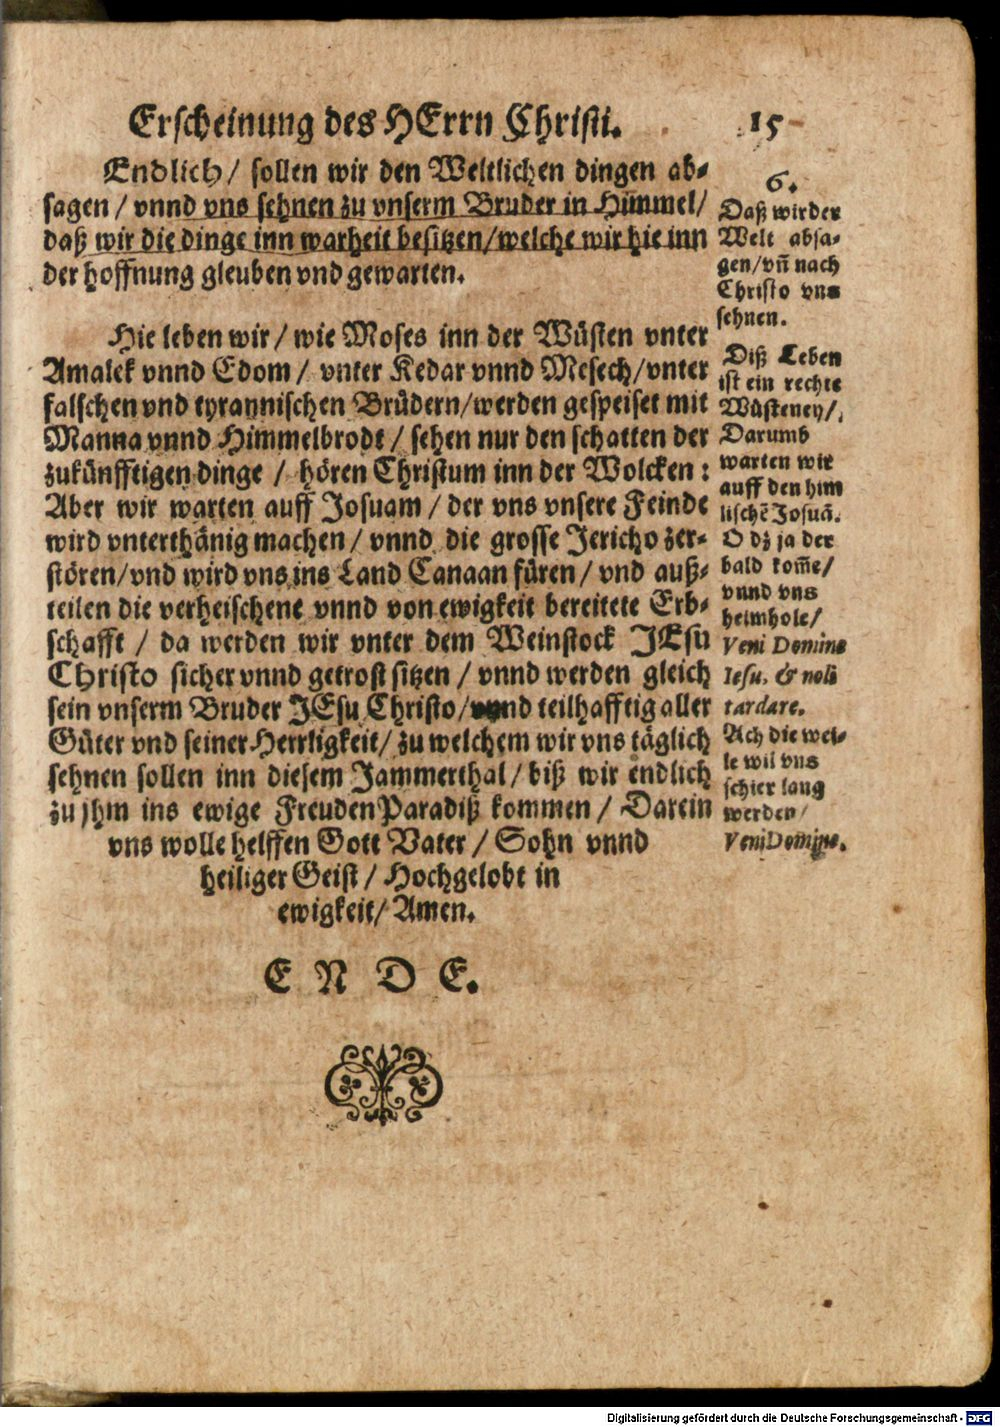 Erscheinung des HErrn Christi. 15
Endlich / sollen wir den Weltlichen dingen ab-
sagen / vnnd vns sehnen zu vnserm Bruder in Him̃el /
daß wir die dinge inn warheit besitzen / welche wir hie inn
der hoffnung gleuben vnd gewarten.
Hie leben wir / wie Moses inn der Wüsten vnter
Amalek vnnd Edom / vnter Kedar vnnd Mesech / vnter
falschen vnd tyrannischen Brüdern / werden gespeiset mit
Manna vnnd Himmelbrodt / sehen nur den schatten der
zukünfftigen dinge / hören Christum inn der Wolcken :
Aber wir warten auff Josuam / der vns vnsere Feinde
wird vnterthänig machen / vnnd die grosse Jericho zer-
stören / vnd wird vns ins Land Canaan füren / vnd auß-
teilen die verheischene vnnd von ewigkeit bereitete Erb-
schafft / da werden wir vnter dem Weinstock JEsu
Christo sicher vnnd getrost sitzen / vnnd werden gleich
sein vnserm Bruder JEsu Christo / vnnd teilhafftig aller
Güter vnd seiner Herrligkeit / zu welchem wir vns täglich
sehnen sollen inn diesem Jammerthal / biß wir endlich
zu jhm ins ewige FreudenParadiß kommen / Darein
vns wolle helffen Gott Vater / Sohn vnnd
heiliger Geist / Hochgelobt in
ewigkeit / Amen.
E N D E.
6.
Daß wir der
Welt absa-
gen / vn̄ nach
Christo vns
sehnen.
Diß Leben
ist ein rechte
Wüsteney /
Darumb
warten wir
auff den him
lischē Josuā.
O dz ja der
bald kom̄e /
vnnd vns
heimhole /
Veni Domine
Iesu, & noli
tardare.
Ach die wei-
le wil vns
schier lang
werden /
Veni Domine.
Digitalisierung gefördert durch die Deutsche Forschungsgemeinschaft - DFG